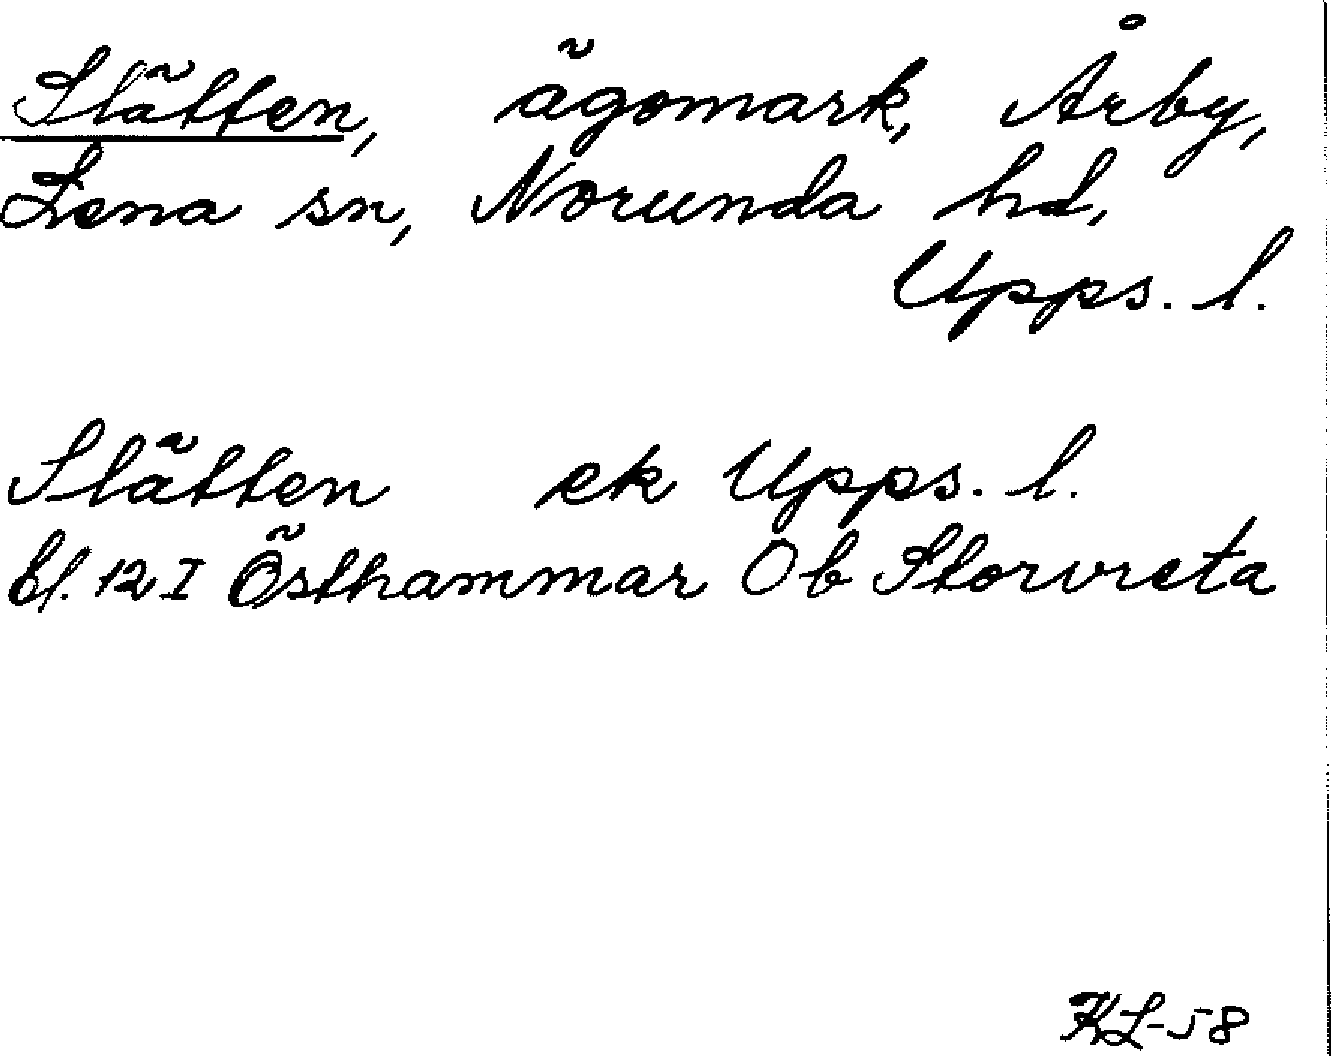 Slätten, ägomark, Årby,
Lena sn, Norunda hd,
Upps. l.
Slätten ek Upps. l.
bl. 12 I Östhammar Ob Storvreta
KL-58